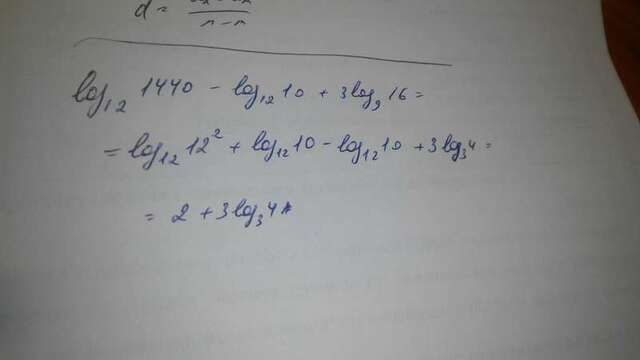 d = 
n - n
log₁₂ 1440 - log₁₂ 10 + 3log₉ 16 =
= log₁₂ 12² + log₁₂ 10 - log₁₂ 10 + 3log₃ 4 =
= 2 + 3log₃ 4